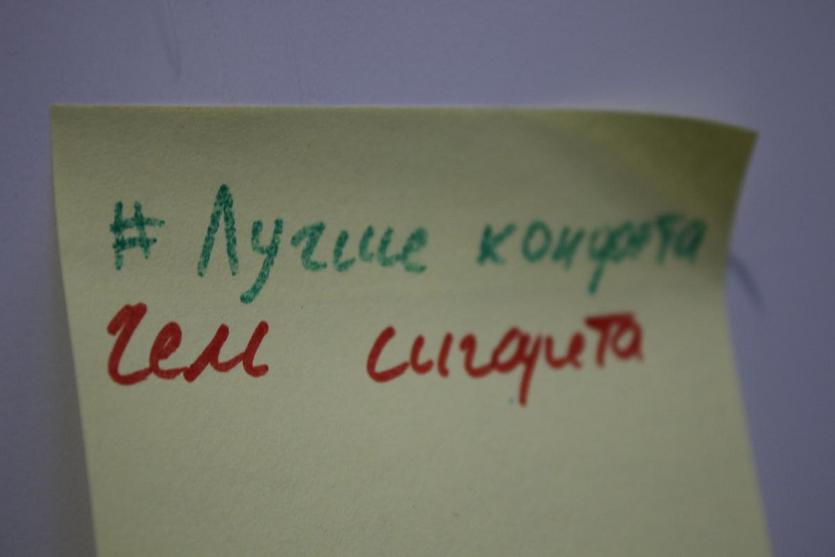 # Лучше конфета
Чем сигарета